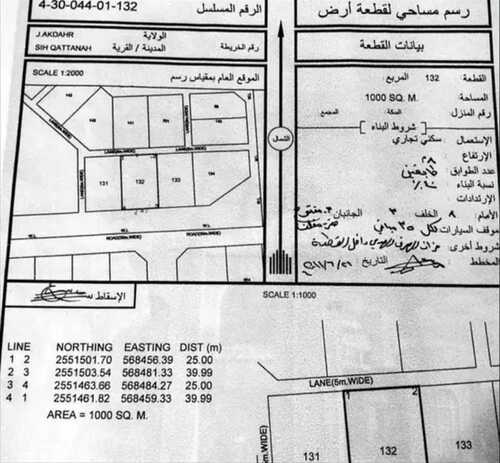 4-30-044-01-132
الرقم المسلسل
رسم مساحي لقطعة أرض
J.AKDAHR
الولاية
SIH QATTANAH
المدينة / القرية
رقم الخريطة
بيانات القطعة
SCALE 1:2000
الموقع العام بمقياس رسم
القطعة : 132 المربع :
المساحة: 1000 SQ. M.
رقم المنزل السكة: المجمع
شروط البناء
الإستعمال : سكني تجاري
الإرتفاع
عدد الطوابق
نسبة البناء
الإرتدادات
الأمام : ٨ الخلف ٣ الجانبان
موقف السيارات
شروط أخرى
المخطط
التاريخ
الشمال
LANE(5m.WIDE)
LANE(5m.WIDE)
131
132
133
ROAD
الإسقاط
SCALE 1:1000
LINE NORTHING EASTING DIST (m)
1 2 2551501.70 568456.39 25.00
2 3 2551503.54 568481.33 39.99
3 4 2551463.66 568484.27 25.00
4 1 2551461.82 568459.33 39.99
AREA = 1000 SQ. M.
LANE(5m.WIDE)
1 2
5m.WIDE)
131
132
133